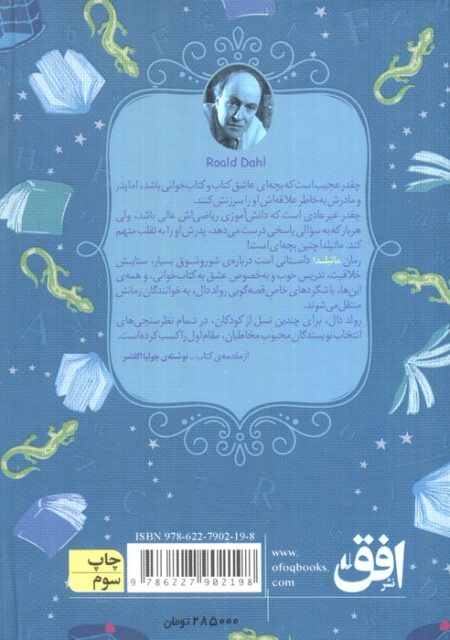 Roald Dahl
چقدر عجیب است که بچه‌ای عاشق کتاب و کتاب‌خوانی باشد، اما پدر
و مادرش به‌خاطر علاقه‌اش او را سرزنش کنند.
چقدر غیرعادی است که دانش‌آموزی ریاضی‌اش عالی باشد، ولی
هربار که به سؤالی پاسخی درست می‌دهد، پدرش او را به تقلب متهم
کند. ماتیلدا چنین بچه‌ای است!
رمان ماتیلدا داستانی است درباره‌ی شوروشوق بسیار، ستایش
خلاقیت، تدریس خوب و به‌خصوص عشق به کتاب‌خوانی. و همه‌ی
این‌ها، با شگردهای خاص قصه‌گویی رولد دال، به خوانندگان رمانش
منتقل می‌شوند.
رولد دال، برای چندین نسل از کودکان، در تمام نظرسنجی‌های
انتخاب نویسندگان محبوب مخاطبان، مقام اول را کسب کرده است.
از مقدمه‌ی کتاب _ نوشته‌ی جولیا اکلشر
ISBN 978-622-7902-19-8
9 786227 902198
چاپ
سوم
www.
ofoqbooks.
com
نشر
افق
۲۸۵۰۰۰ تومان